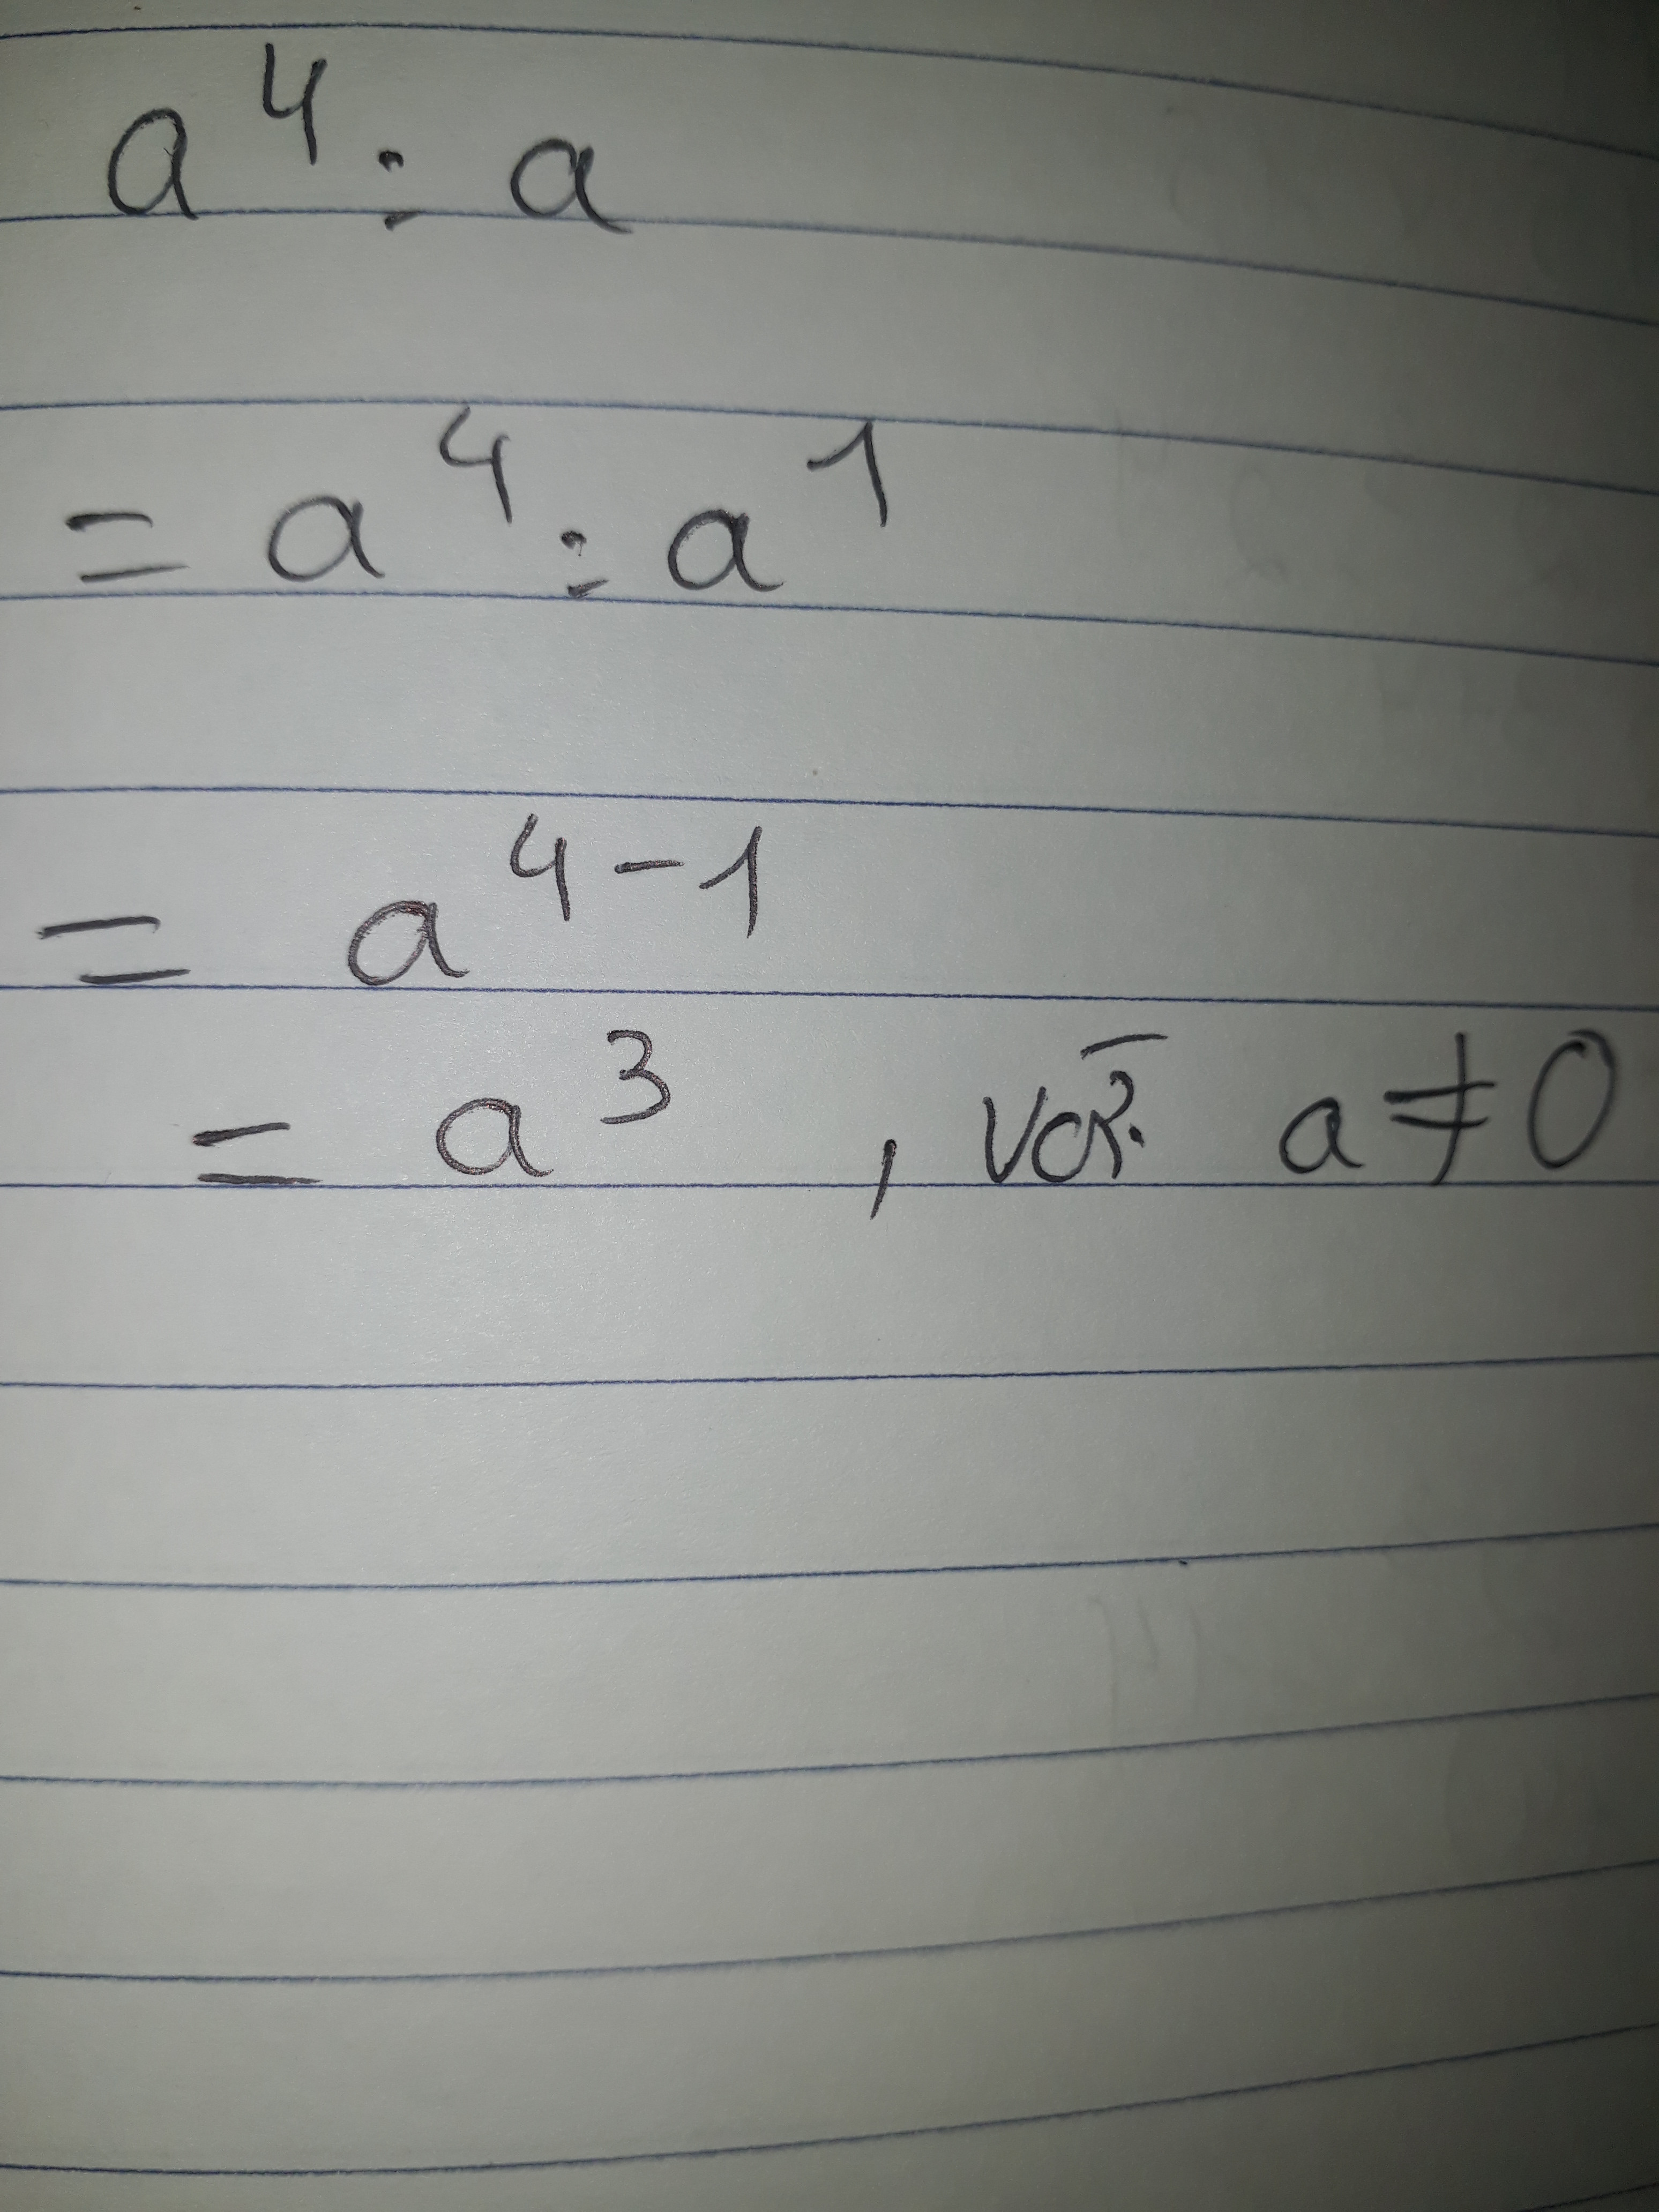 a⁴ : a
= a⁴ : a¹
= a⁴⁻¹
= a³ , với a ≠ 0